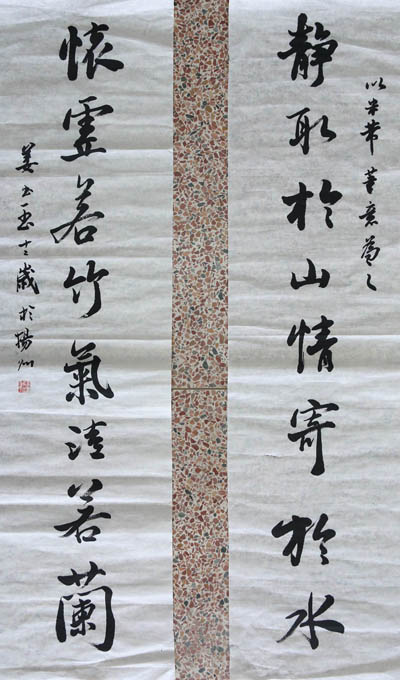 以米芾筆意為之
靜取於山情寄於水
懷虛若竹氣清若蘭
姜書玉歲於揚州